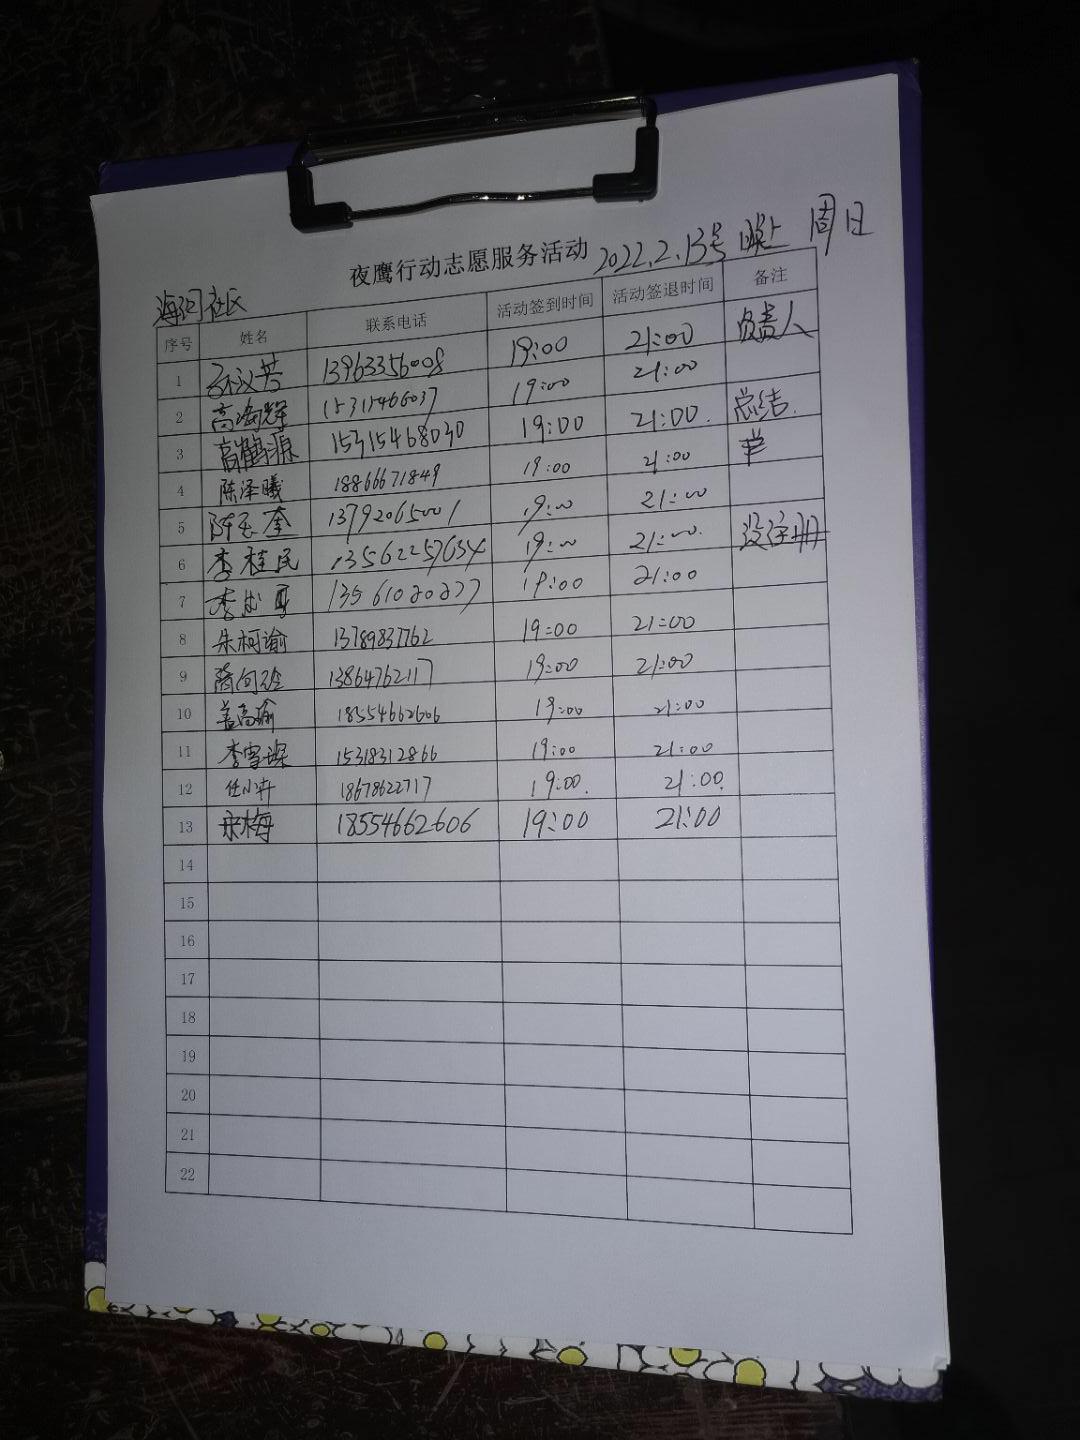 夜鹰行动志愿服务活动 2022.2.13号 晚上 周日
海河社区
序号 姓名 联系电话 活动签到时间 活动签退时间 备注
1 13963356008 19:00 21:00 负责人
2 高海辉 15315466037 19:00 21:00
3 高鹤源 15315468030 19:00 21:00 总结
4 陈泽曦 18866671849 19:00 21:00
5 13792065001 19:00 21:00
6 李桂民 13562257634 19:00 21:00 没注册
7 13561020277 19:00 21:00
8 朱柯谕 13789837762 19:00 21:00
9 13864762117 19:00 21:00
10 18554662606 19:00 21:00
11 李雪琛 15318312866 19:00 21:00
12 任小卉 18678622717 19:00 21:00
13 宋梅 18554662606 19:00 21:00
14
15
16
17
18
19
20
21
22